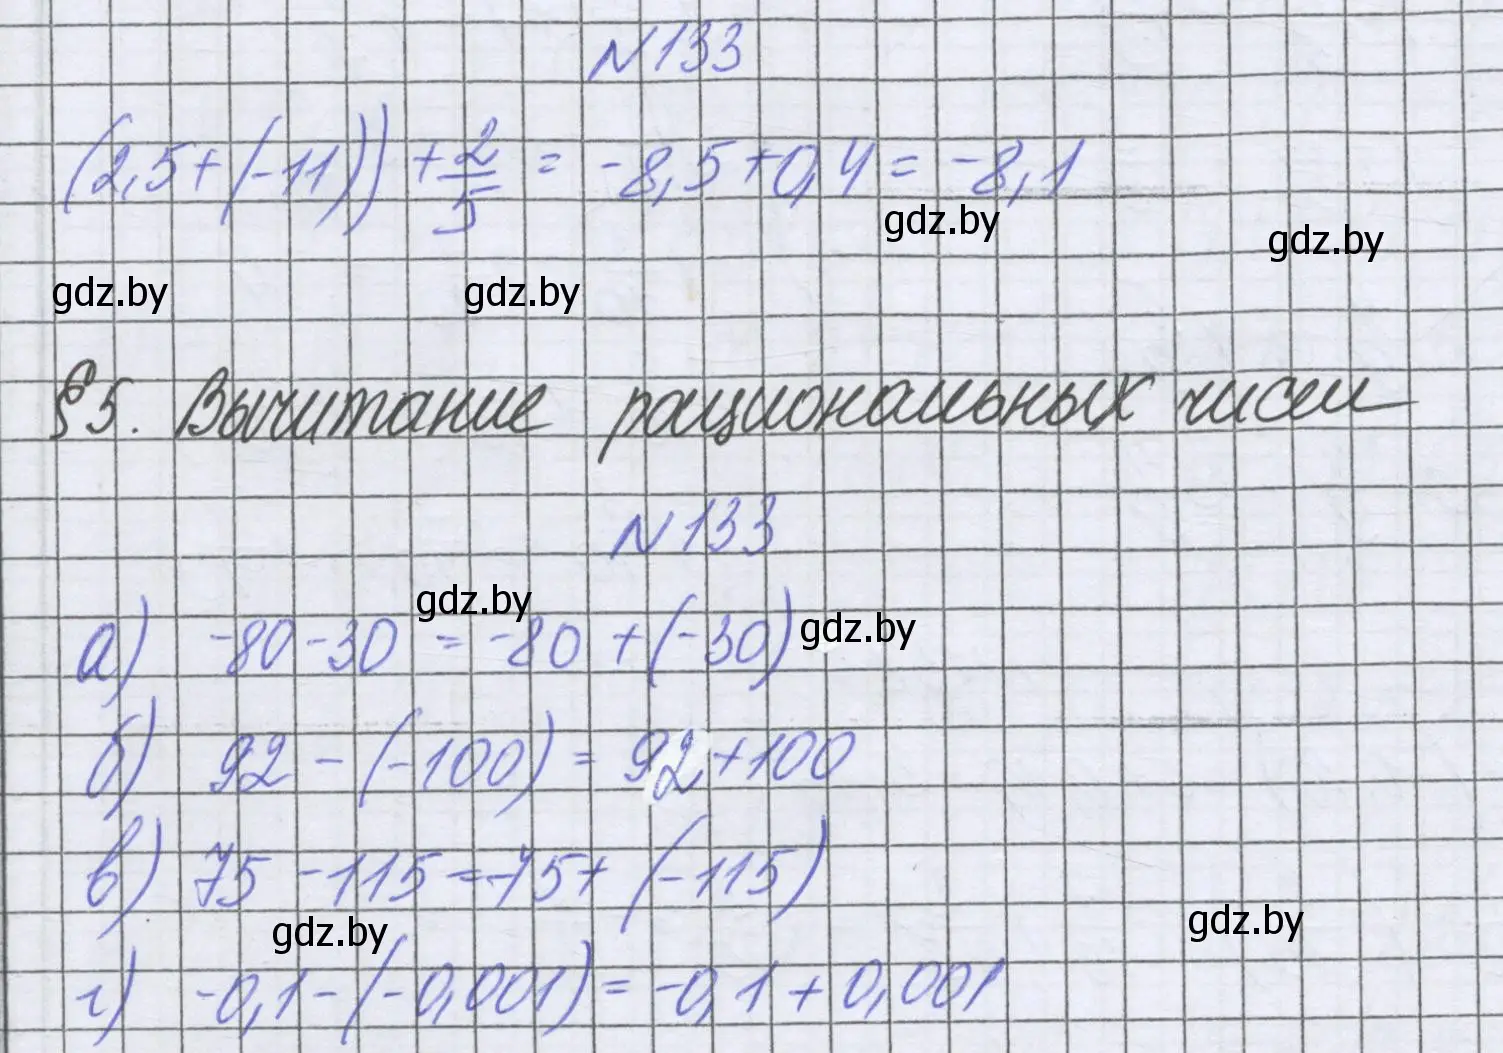 N133
(2,5+(-11))+2/5 = -8,5+0,4 = -8,1
gdz.by
gdz.by
gdz.by gdz.by
§5. Вычитание рациональных чисел
N133
gdz.by
а) -80-30 = -80+(-30) gdz.by
б) 92-(-100) = 92+100
в) 75-115=75+(-115)
gdz.by gdz.by
г) -0,1-(-0,001) = -0,1+0,001